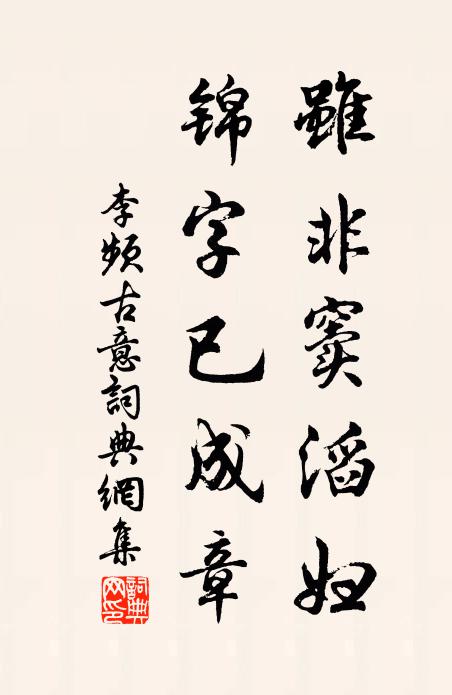 雖非竇滔妇
锦字已成章
李頻古意詞典網集
詞典網印